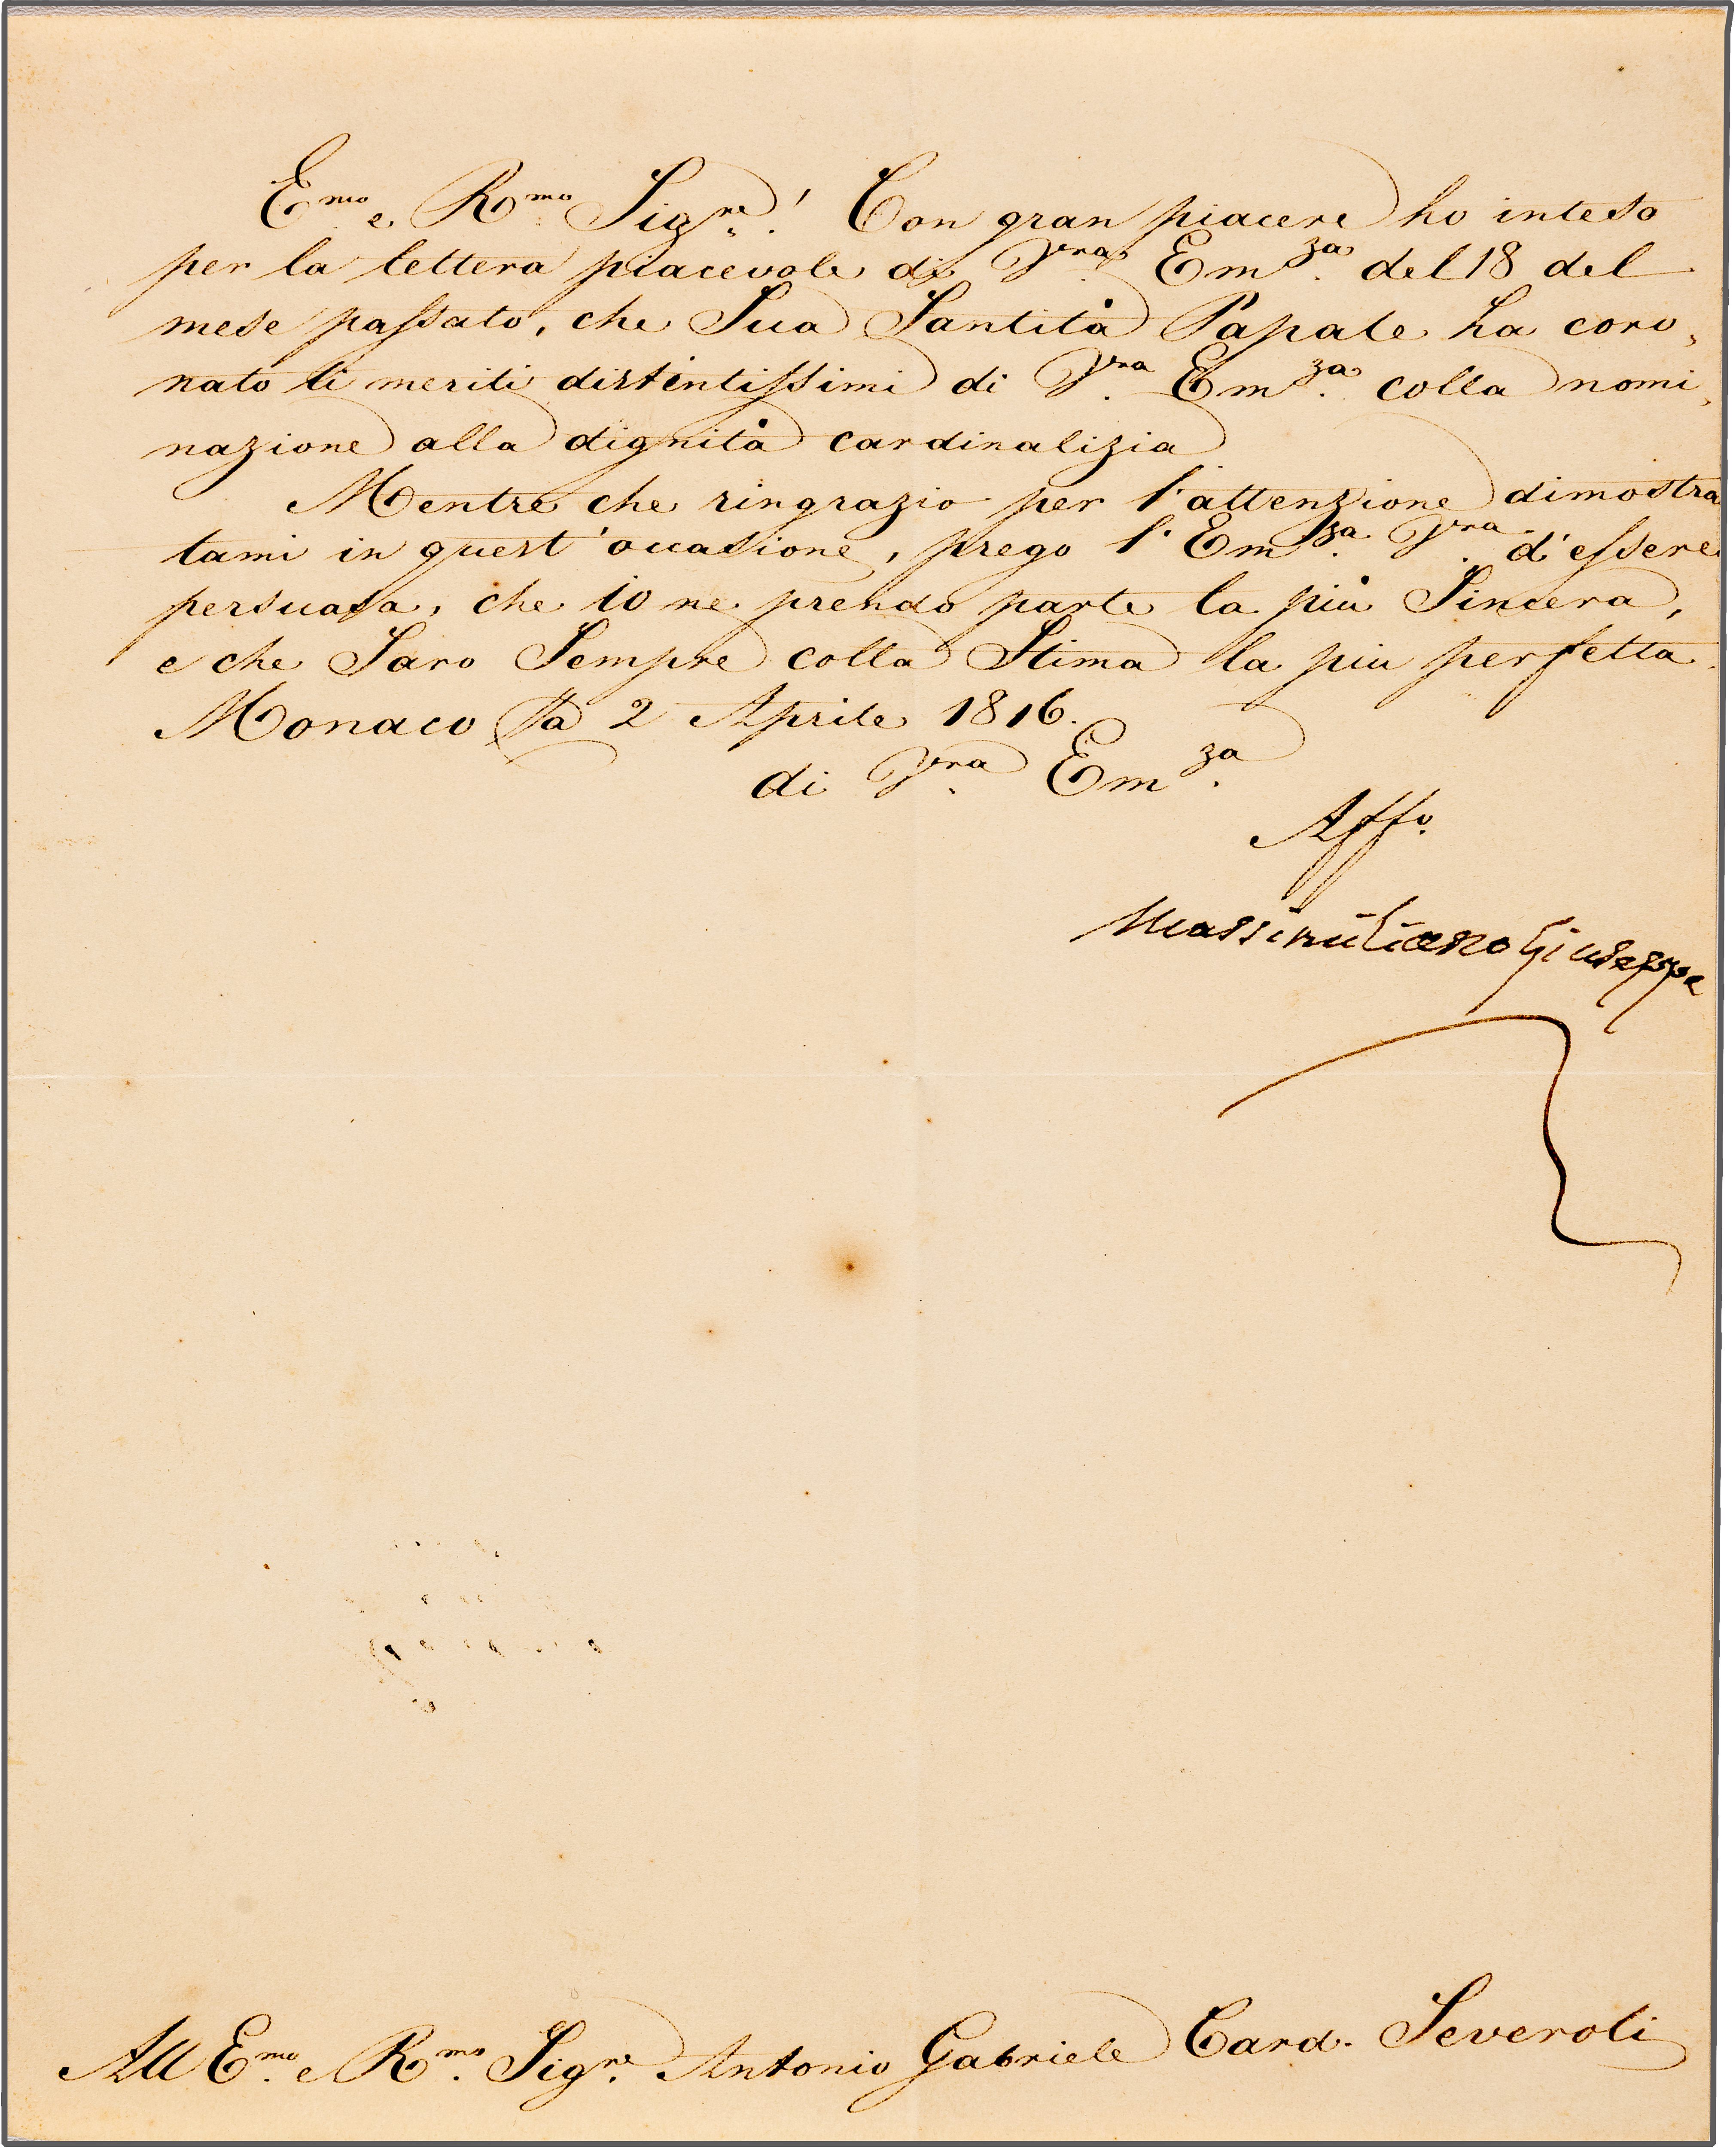 Emo e Rmo Sigre! Con gran piacere ho inteso
per la lettera piacevole di Vra Emza del 18 del
mese passato, che Sua Santità Papale ha coro,
nato li meriti distintissimi di Vra Emza colla nomi,
nazione alla dignità cardinalizia
Mentre che ringrazio per l'attenzione dimostra
tami in quest'occasione, prego l'Emza Vra d'essere
persuasa, che io ne prendo parte la più Sincera,
e che Saro Sempre colla Stima la piu perfetta.
Monaco 2 Aprile 1816.
di Vra Emza
Affo.
Massimiliano Giuseppe
All Emo e Rmo Sigre Antonio Gabriele Card. Severoli